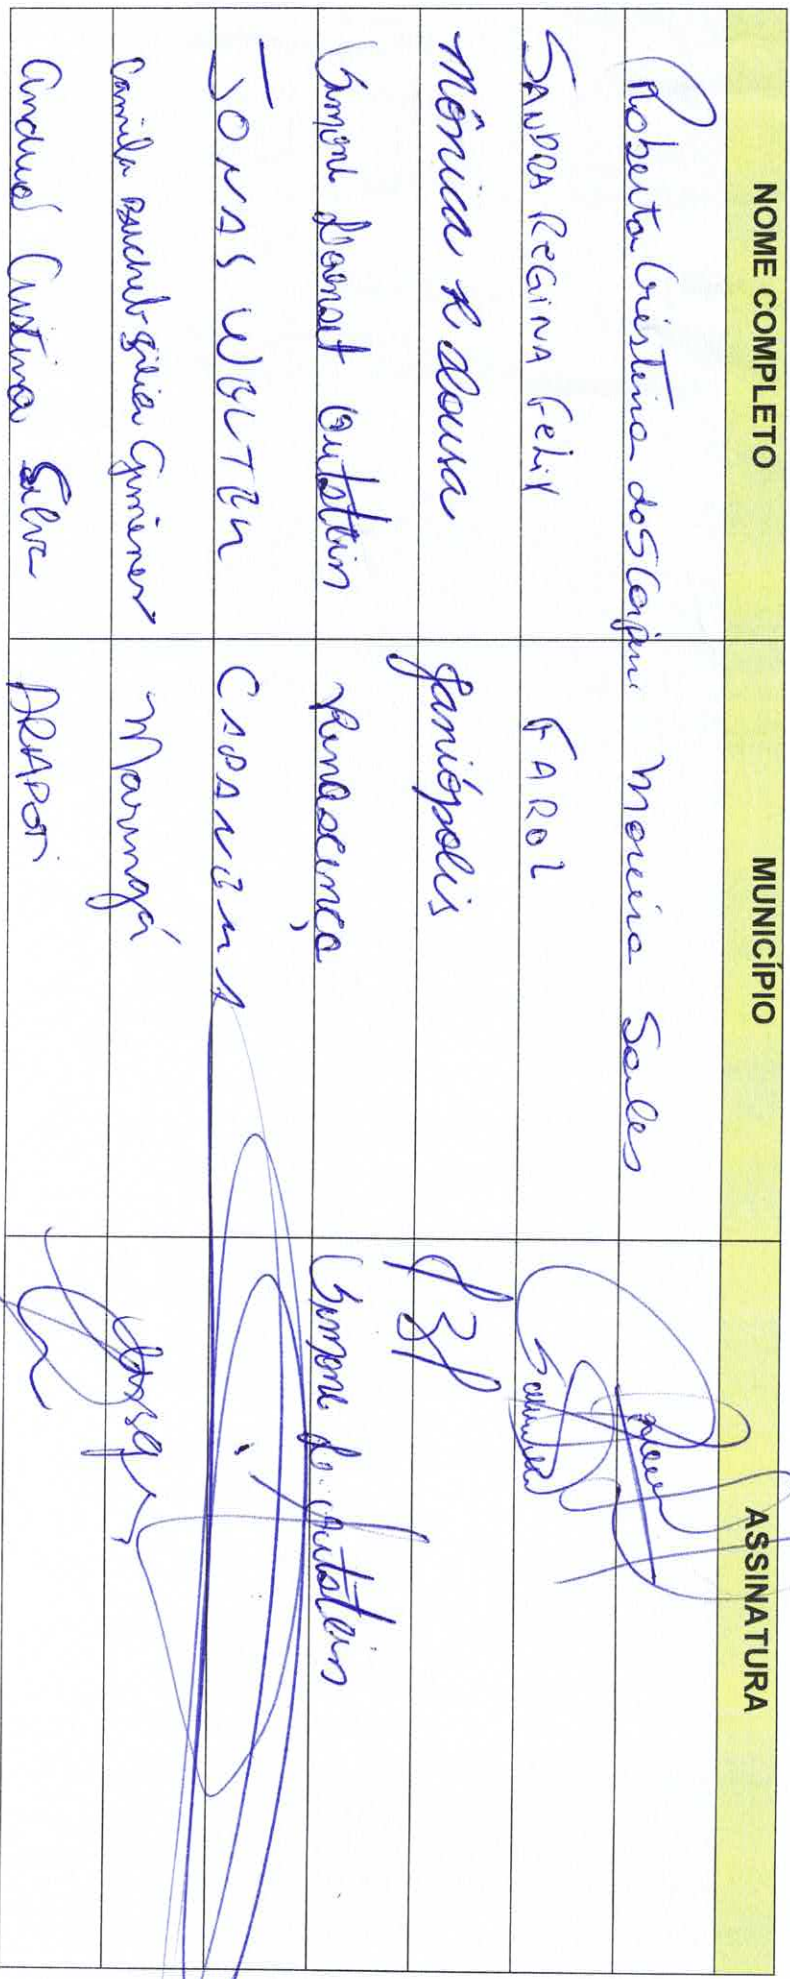 NOME COMPLETO MUNICÍPIO ASSINATURA
Roberta Cristina dos Moreira Sales
SANDRA REGINA FELIX FAROL
Mônica R Sousa Janiópolis
Simone Gutstein Renascença Simone Gutstein
JONAS WELTER CAPANEMA
Camila Gimenes Maringá
Andrea Cristina Silva ARAPOTI